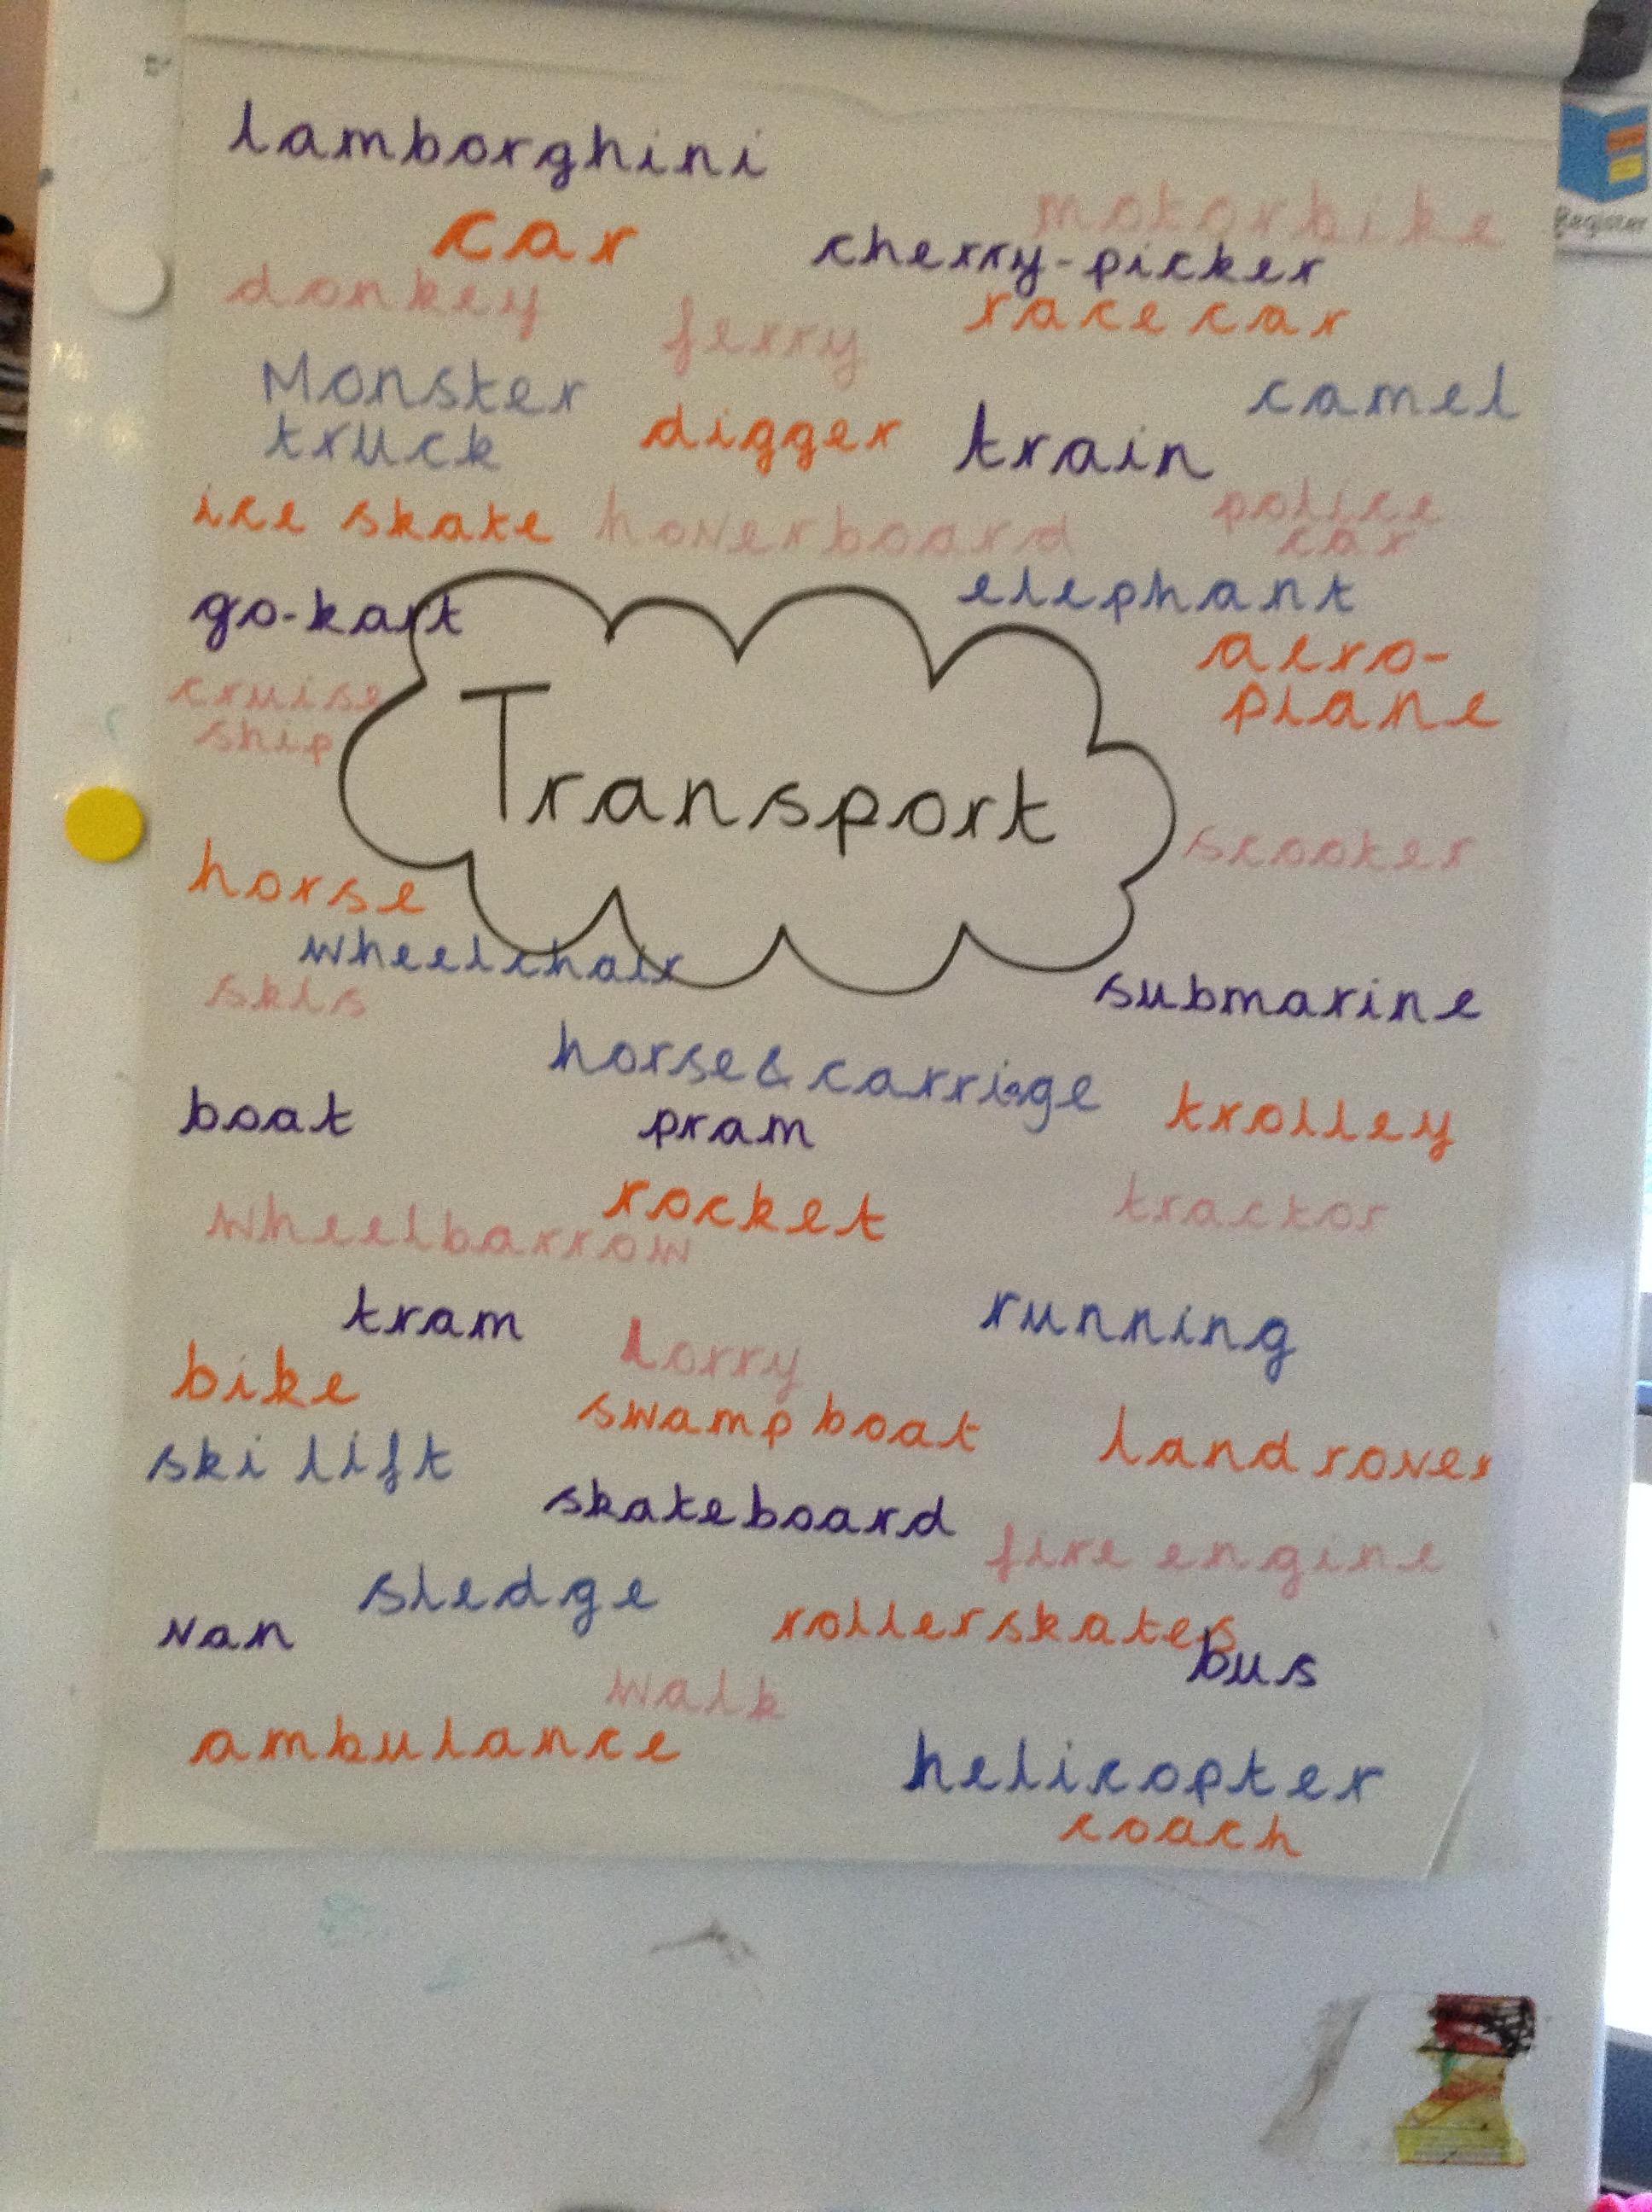 lamborghini
motorbike
car
cherry-picker
donkey
race car
ferry
Monster
truck
camel
digger
train
ice skate
hoverboard
police
car
go-kart
elephant
aero-
plane
cruise
ship
Transport
scooter
horse
wheelchair
skis
submarine
horse & carriage
boat
pram
trolley
wheelbarrow
rocket
tractor
tram
lorry
running
bike
swamp boat
land rover
ski lift
skateboard
fire engine
sledge
van
rollerskates
bus
walk
ambulance
helicopter
coach
Register